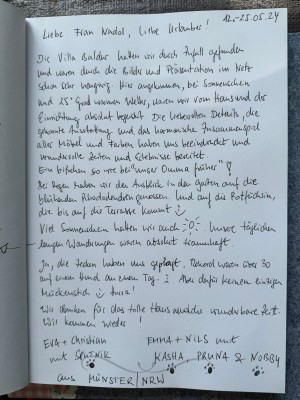 12.-25.05.24
Liebe Frau Nadol, Liebe Urlauber!
Die Villa Baldur hatten wir durch Zufall gefunden
und waren durch die Bilder und Präsentation im Netz
schon sehr neugierig. Hier angekommen, bei Sonnenschein
und 25° Grad warmen Wetter, waren wir vom Haus und der
Einrichtung absolut begeistert. Die liebevollen Details, die
gekonnte Ausstattung und das harmonische Zusammenspiel
aller Möbel und Farben haben uns beeindruckt und
wundervolle Zeiten und Erlebnisse bereitet.
Ein bißchen so wie bei "unser Omma früher"!
Bei Regen haben wir den Ausblick in den Garten auf die
blühenden Rhododendren genossen. Und auf die Rotfüchsin,
die bis auf die Terrasse kommt
Viel Sonnenschein hatten wir auch. Unsere täglichen
langen Wanderungen waren absolut traumhaft.
Ja, die Zecken haben uns geplagt, Rekord waren über 30
auf einem Hund an einem Tag. Aber dafür keinen einzigen
Mückenstich hurra!
Wir danken für das tolle Haus und die wunderbare Zeit.
Wir kommen wieder!
EVA + Christian EMMA + NILS mit
mit KASHA, PRUNA & NOBBY
aus MÜNSTER/NRW